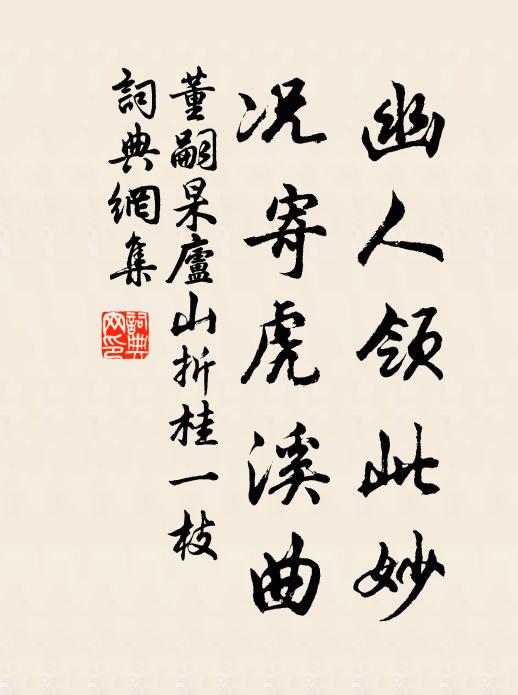 幽人領此妙
況寄虎溪曲
董嗣杲廬山折桂一枝
詞典網集
詞典網印